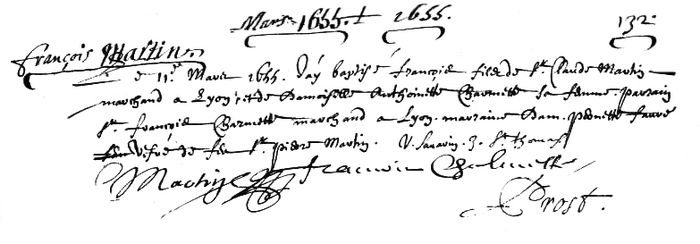 Mars 1655. + 1655. 132.
François Martin.
Le 11e Mars 1655. J'ay baptisé François filz de Sr. Claude Martin
marchand a Lyon, et de Damoiselle Anthoinette Charmette sa femme. parrain
Sr. François Charmette marchand a Lyon. marraine Dam. Pernette Favre
vefve de feu Sr. Pierre Martin.
Martin François Charmette
Prost.